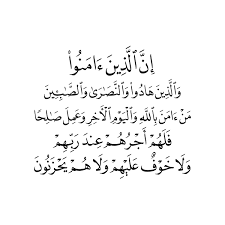 إِنَّ ٱلَّذِينَ ءَامَنُوا۟
وَٱلَّذِينَ هَادُوا۟ وَٱلنَّصَٰرَىٰ وَٱلصَّٰبِـِٔينَ
مَنْ ءَامَنَ بِٱللَّهِ وَٱلْيَوْمِ ٱلْءَاخِرِ وَعَمِلَ صَٰلِحًا
فَلَهُمْ أَجْرُهُمْ عِندَ رَبِّهِمْ
وَلَا خَوْفٌ عَلَيْهِمْ وَلَا هُمْ يَحْزَنُونَ